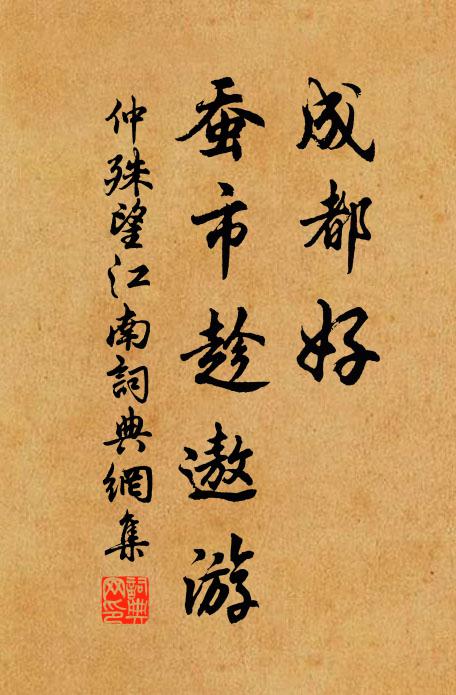 成都好
蚕市趁遨游
仲殊望江南詞典網集
詞典网印